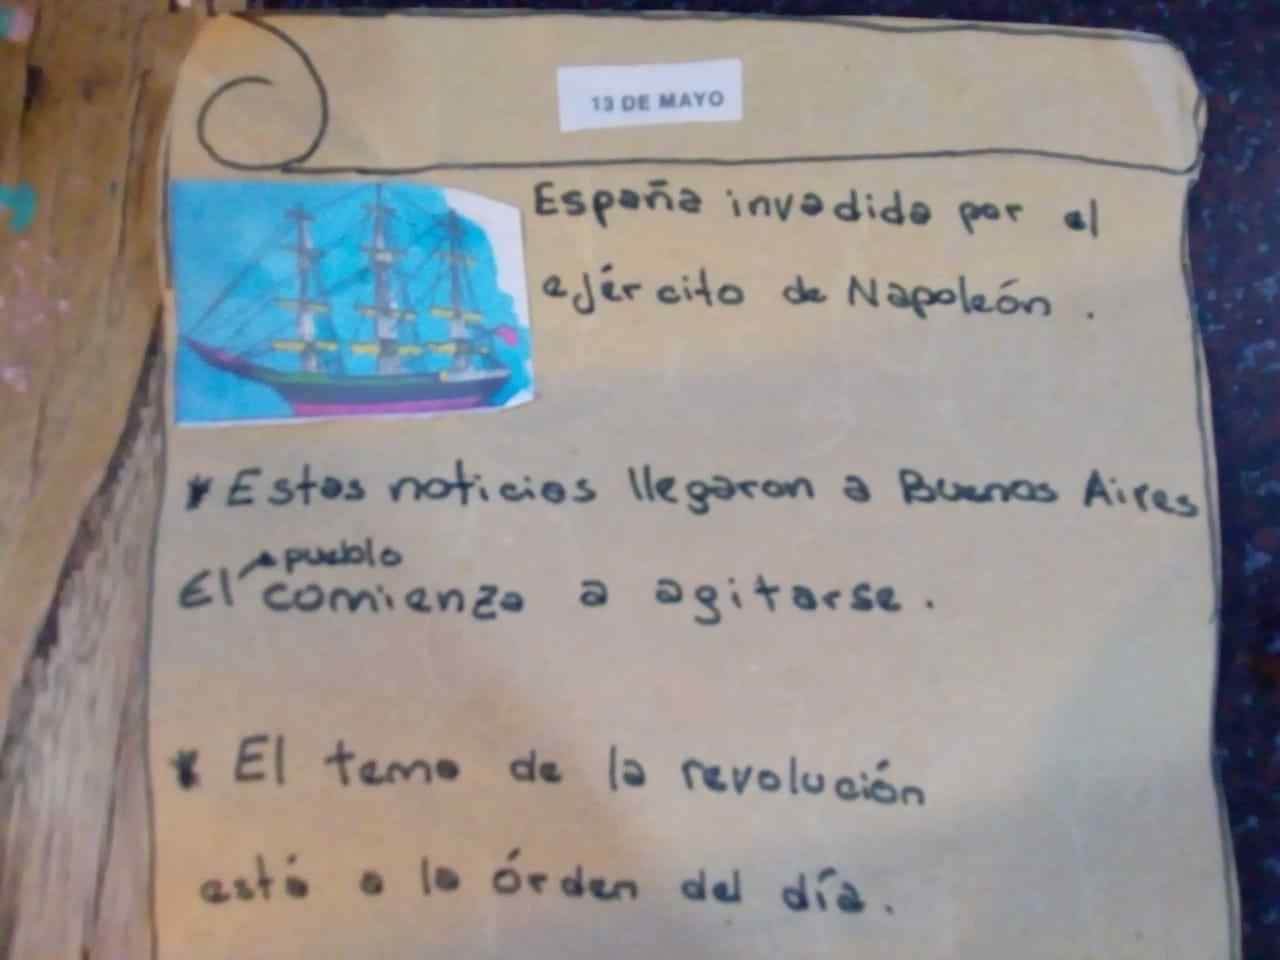 13 DE MAYO
España invadida por el
ejército de Napoleón.
* Estas noticias llegaron a Buenos Aires
pueblo
El comienza a agitarse.
* El tema de la revolución
está a la órden del día.